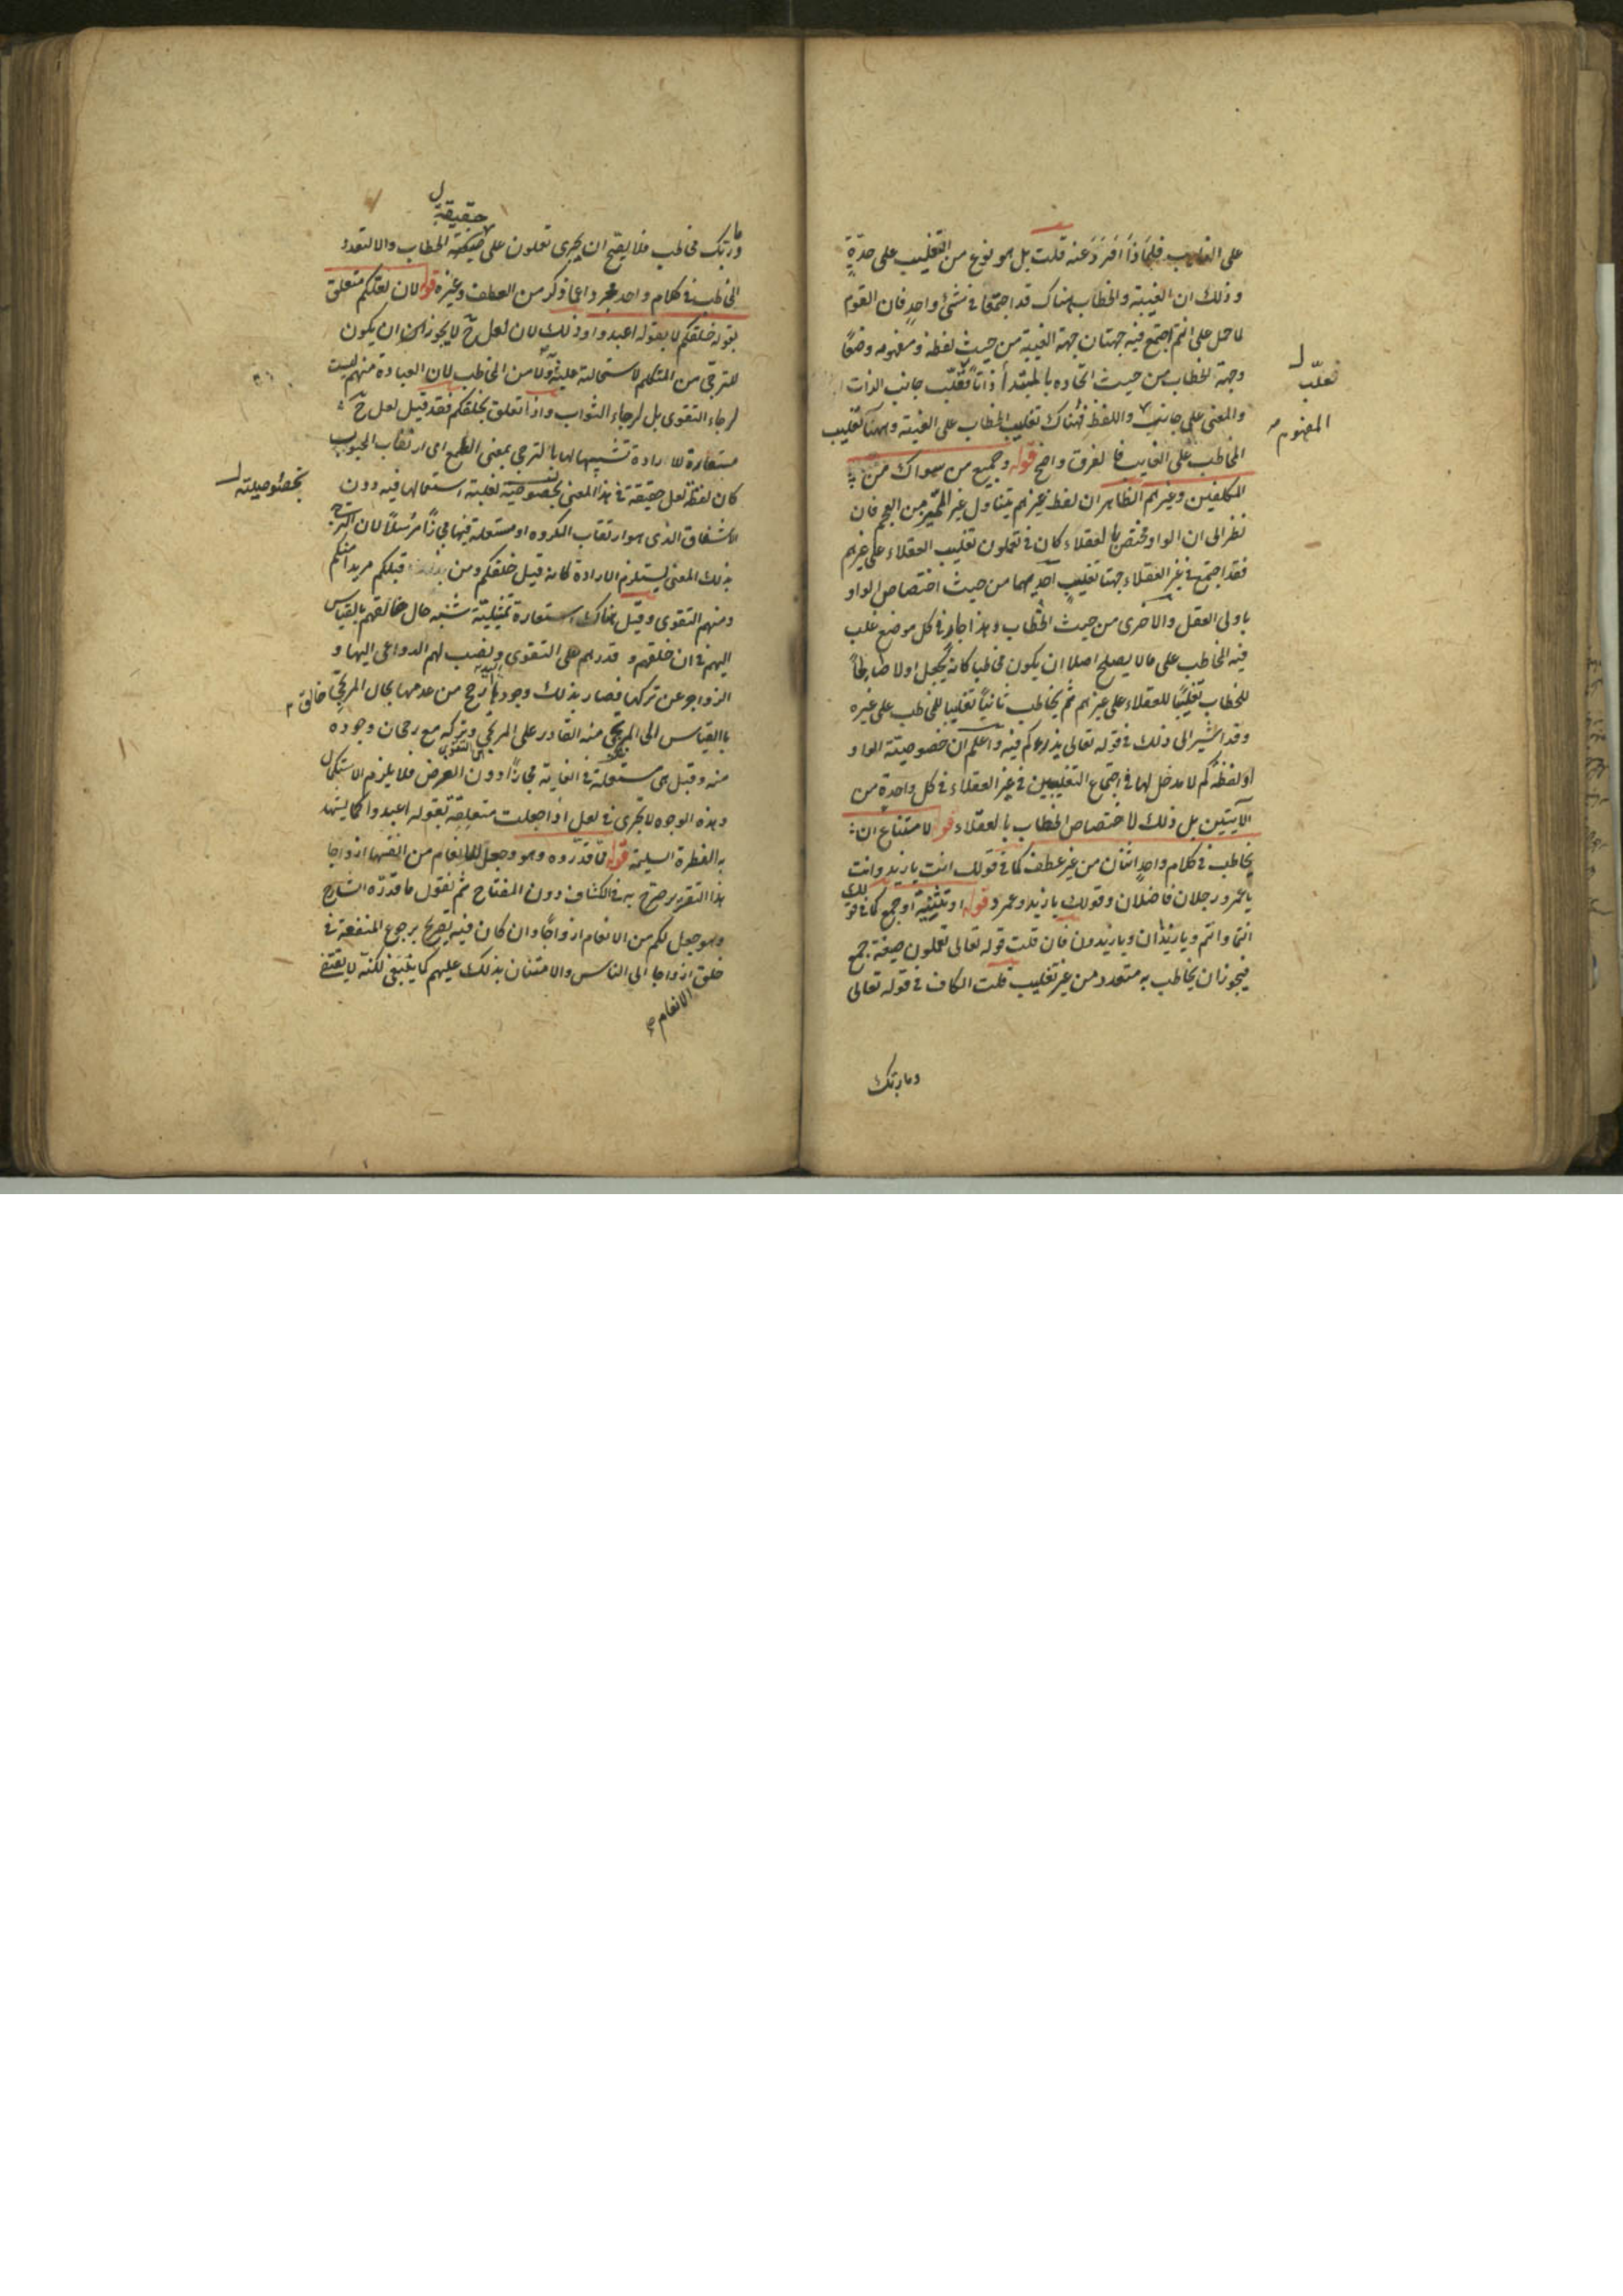 على الغايب فلماذا افرد عنه قلت بل هو نوع من التغليب على حدة
وذلك ان الغيبة والخطاب هناك قد اجتمعا في شئ واحد فان القوم
لما حمل على انتم اجتمع فيه جهتان جهة الغيبة من حيث لفظه ومفهومه وضعا
وجهة الخطاب من حيث اتحاده بالمبتدأ ذاتا فغلب جانب الذات
فغلب ل
والمعنى على جانب واللفظ فهناك تغليب الخطاب على الغيبة وههنا تغليب
المفهوم
المخاطب على الغايب فالفرق واضح قوله وجميع من سواك من
المكلفين وغيرهم الظاهر ان لفظ غيرهم يتناول غير المميز من العجم فان
نظر الى ان الواو مختص بالعقلاء كان في تعملون تغليب العقلاء على غيرهم
فقد اجتمع في غير العقلاء جهتا تغليب احديهما من حيث اختصاص الواو
باولى العقل والاخرى من حيث الخطاب وهذا جار في كل موضع غلب
فيه المخاطب على ما لا يصلح اصلا ان يكون مخاطبا كانه يجعل اولا صالحا
للخطاب تغليبا للعقلاء على غيرهم ثم يخاطب ثانيا تغليبا للمخاطب على غيره
وقد اشير الى ذلك في قوله تعالى يذرؤكم فيه واعلم ان خصوصية الواو
او لفظة كم لا مدخل لها في اجتماع التغليبين في غير العقلاء في كل واحدة من
الآيتين بل ذلك لاختصاص الخطاب بالعقلاء قوله لامتناع ان
يخاطب في كلام واحد اثنان من غير عطف كما في قولك انت يا زيد وانت
يا عمرو رجلان فاضلان وقولك يا زيد وعمرو قوله او تثنية او جمع كما في قولك
انتما وانتم ويا زيدان ويا زيدون فان قلت قوله تعالى تعملون صيغة جمع
فيجوز ان يخاطب به متعدد من غير تغليب قلت الكاف في قوله تعالى
وما ربك
حقيقة ل
وما ربك مخاطب فلا يصح ان يجرى تعملون على الخطاب والا لتعدد
المخاطب في كلام واحد مجردا عما ذكر من العطف وغيره قوله لان لعلكم متعلق
بقوله خلقكم لا بقوله اعبدوا وذلك لان لعل ح لا يجوز ان يكون
للترجي من المتكلم لاستحالته عليه ولا من المخاطب لان العبادة منهم ليست
لرجاء التقوى بل لرجاء الثواب واذا تعلق بخلقكم فقد قيل لعل ح
مستعارة للارادة تشبيها لها بالترجي بمعنى الطمع اى ارتقاب المحبوب
كان لفظة لعل حقيقة في هذا المعنى بخصوصه لغلبة استعمالها فيه دون
بخصوصيته ل
الاشفاق الذى هو ارتقاب المكروه او مستعملة فيها مجازا مرسلا لان الترجي
بذلك المعنى يستلزم الارادة كانه قيل خلقكم ومن قبلكم مريدا منكم
ومنهم التقوى وقيل هناك استعارة تمثيلية شبه حال خالقهم بالقياس
اليهم في ان خلقهم و قدرهم على التقوى ونصب لهم الدواعى اليها و
الزواجر عن تركها فصار بذلك وجودها ارجح من عدمها بحال المرتجى خالق
بالقياس الى المرتجى منه القادر على المرتجى وتركه مع رجحان وجوده
منه وقيل هى مستعملة في الغاية مجازا دون الغرض فلا يلزم الاستكمال
وهذه الوجوه لا تجرى في لعل اذا جعلت متعلقة بقوله اعبدوا كما يشهد
به الفطرة السليمة قوله فما قدروه وهو وجعل للانعام من انفسها ازواجا
هذا التقرير صرح به في الكشاف دون المفتاح ثم نقول ما قدره الشارح
وهو جعل لكم من الانعام ازواجا وان كان فيه تصريح برجوع المنفعة في
خلق ازواجا الى الناس والامتنان بذلك عليهم كما ينبغى لكنه لا يقتضى
الانعام